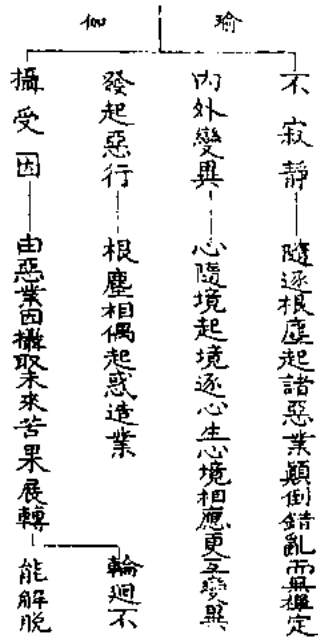 瑜伽
不寂靜
隨逐根塵起諸惡業顛倒錯亂而無禪定
內外變異
心隨境起境逐心生心境相應更互變異
發起惡行
根塵相偶起惑造業
攝受因
由惡業因攝取未來苦果展轉
輪迴不
能解脫